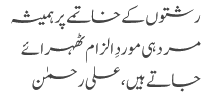 رشتوں کے خاتمے پر ہمیشہ
مرد ہی موردِ الزام ٹھہرائے
جاتے ہیں، علی رحمٰن